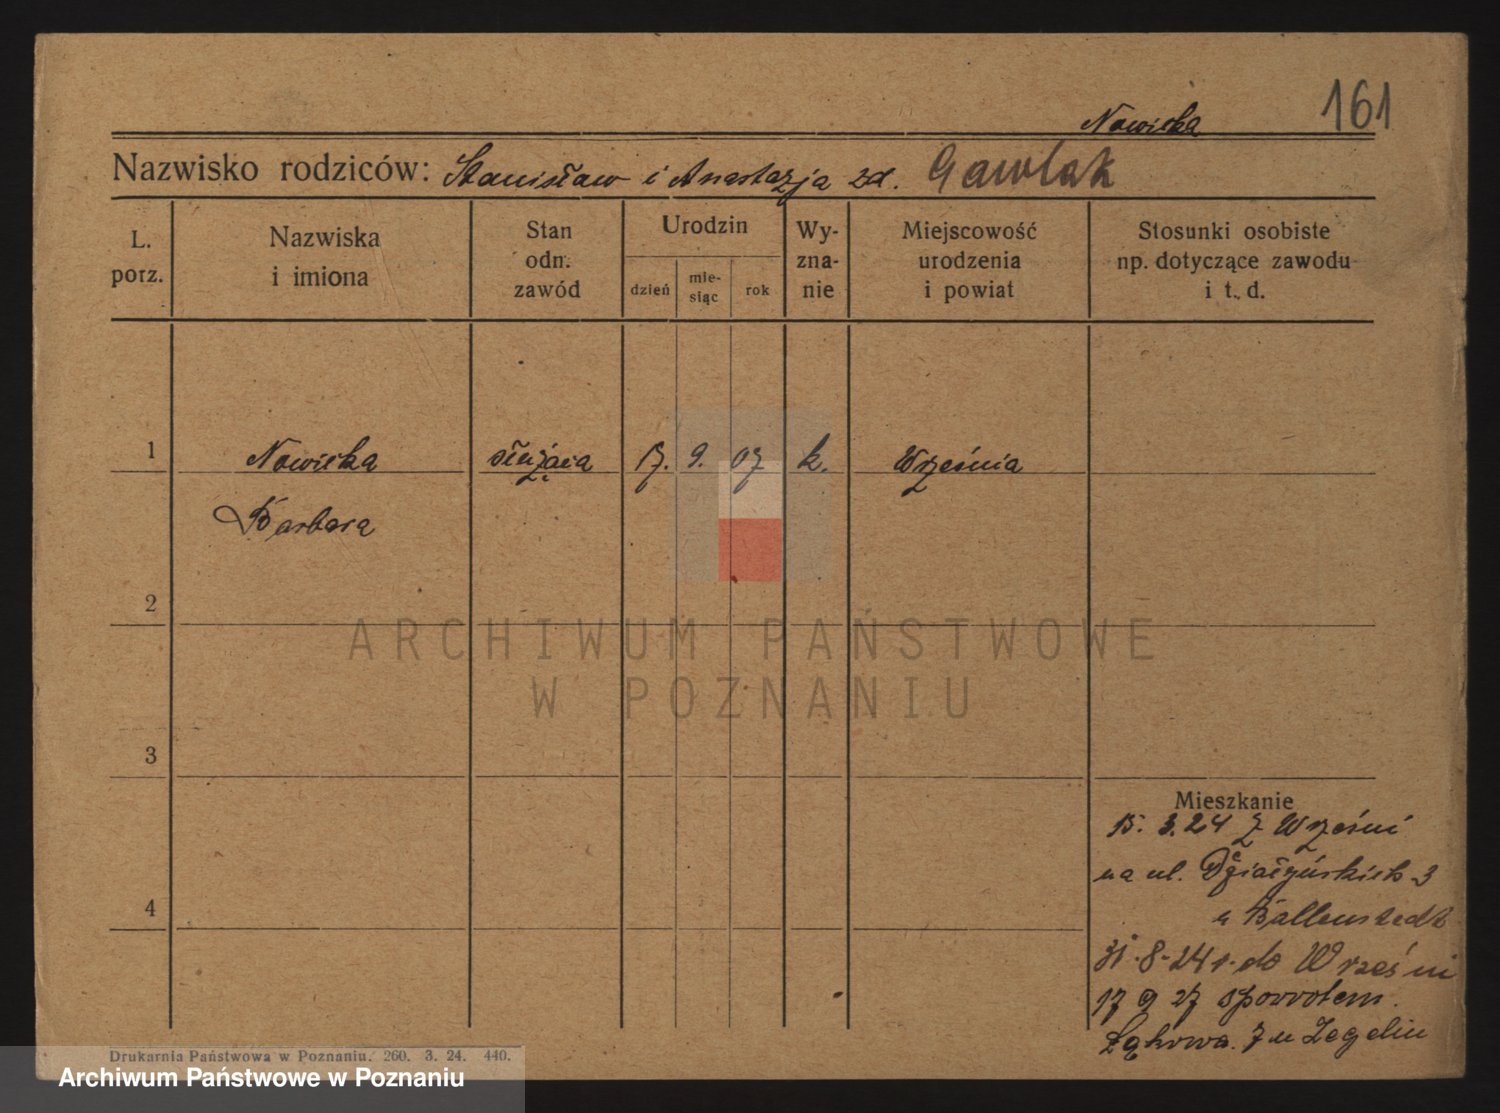 161
Nowicka
Nazwisko rodziców: Stanisław i Anastazja zd. Gawlak
L. porz.
Nazwiska i imiona
Stan odn. zawód
Urodzin
dzień
mie-siąc
rok
Wy-zna-nie
Miejscowość urodzenia i powiat
Stosunki osobiste np. dotyczące zawodu i t. d.
1 Nowicka służąca 17. 9. 07 k. Września
Barbara
2
3
4
ARCHIWUM PAŃSTWOWE
W POZNANIU
Mieszkanie
15. 3. 24 z Wrześni
na ul. Działyńskich 3
u Ballenstedt
31.8.24 r. do Wrześni
17 9 27 spowrotem.
Łąkowa. 7 u
Drukarnia Państwowa w Poznaniu. 260. 3. 24. 440.
Archiwum Państwowe w Poznaniu